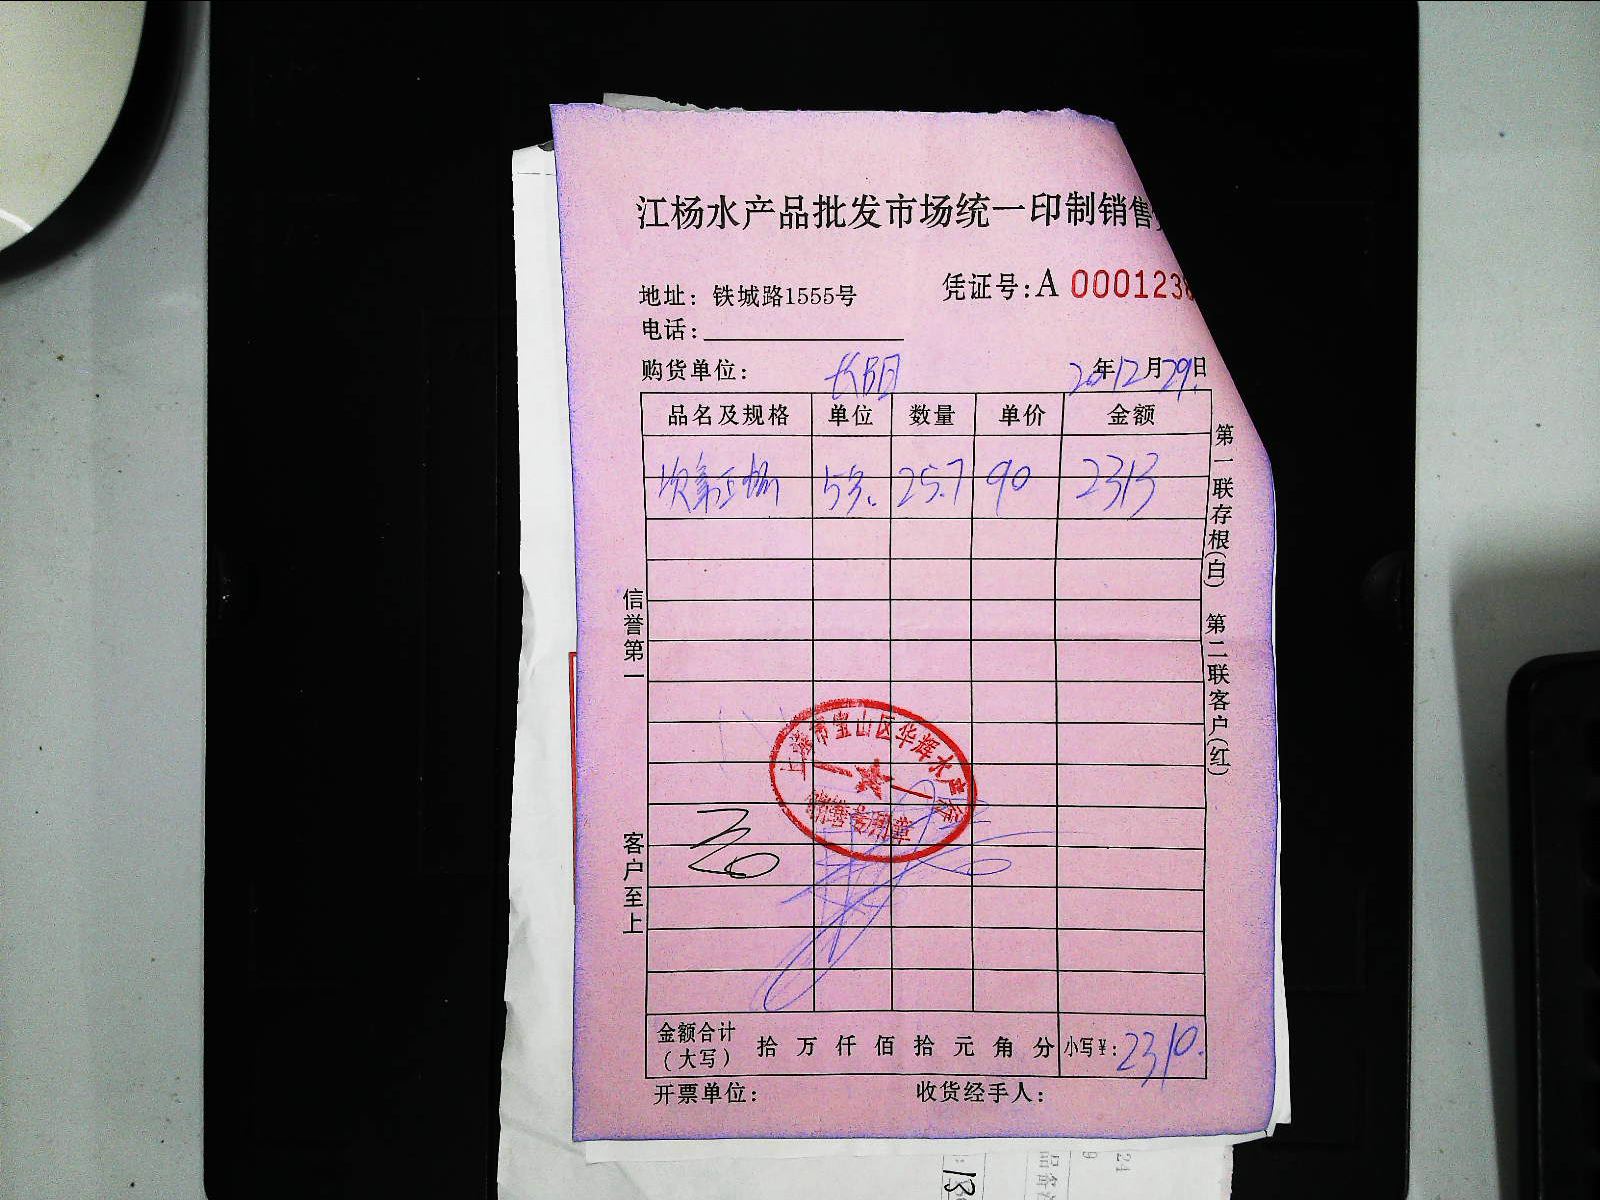 江杨水产品批发市场统一印制销售
地址：铁城路1555号
凭证号：A 000123
电话：
购货单位：
20年12月29日
品名及规格 单位 数量 单价 金额
25.7 90 2313
第一联存根(白) 第二联客户(红)
信誉第一
客户至上
上海市宝山区华辉水产
销售专用章
金额合计（大写） 拾 万 仟 佰 拾 元 角 分 小写￥：2310.
开票单位： 收货经手人：